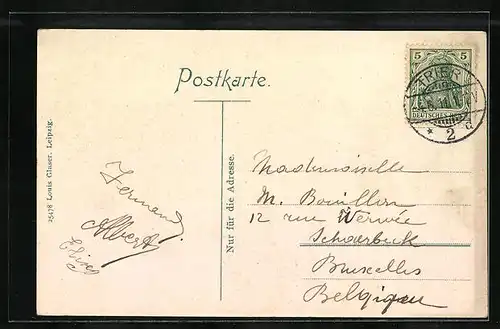 5 5
TRIER
DEUTSCHES
* 2 d
Postkarte.
Nur für die Adresse.
25478 Louis Glaser, Leipzig.
Fernand
Albert
Mademoiselle
M. Bouillon
12 rue Verwée
Schaerbeck
Bruxelles
Belgique